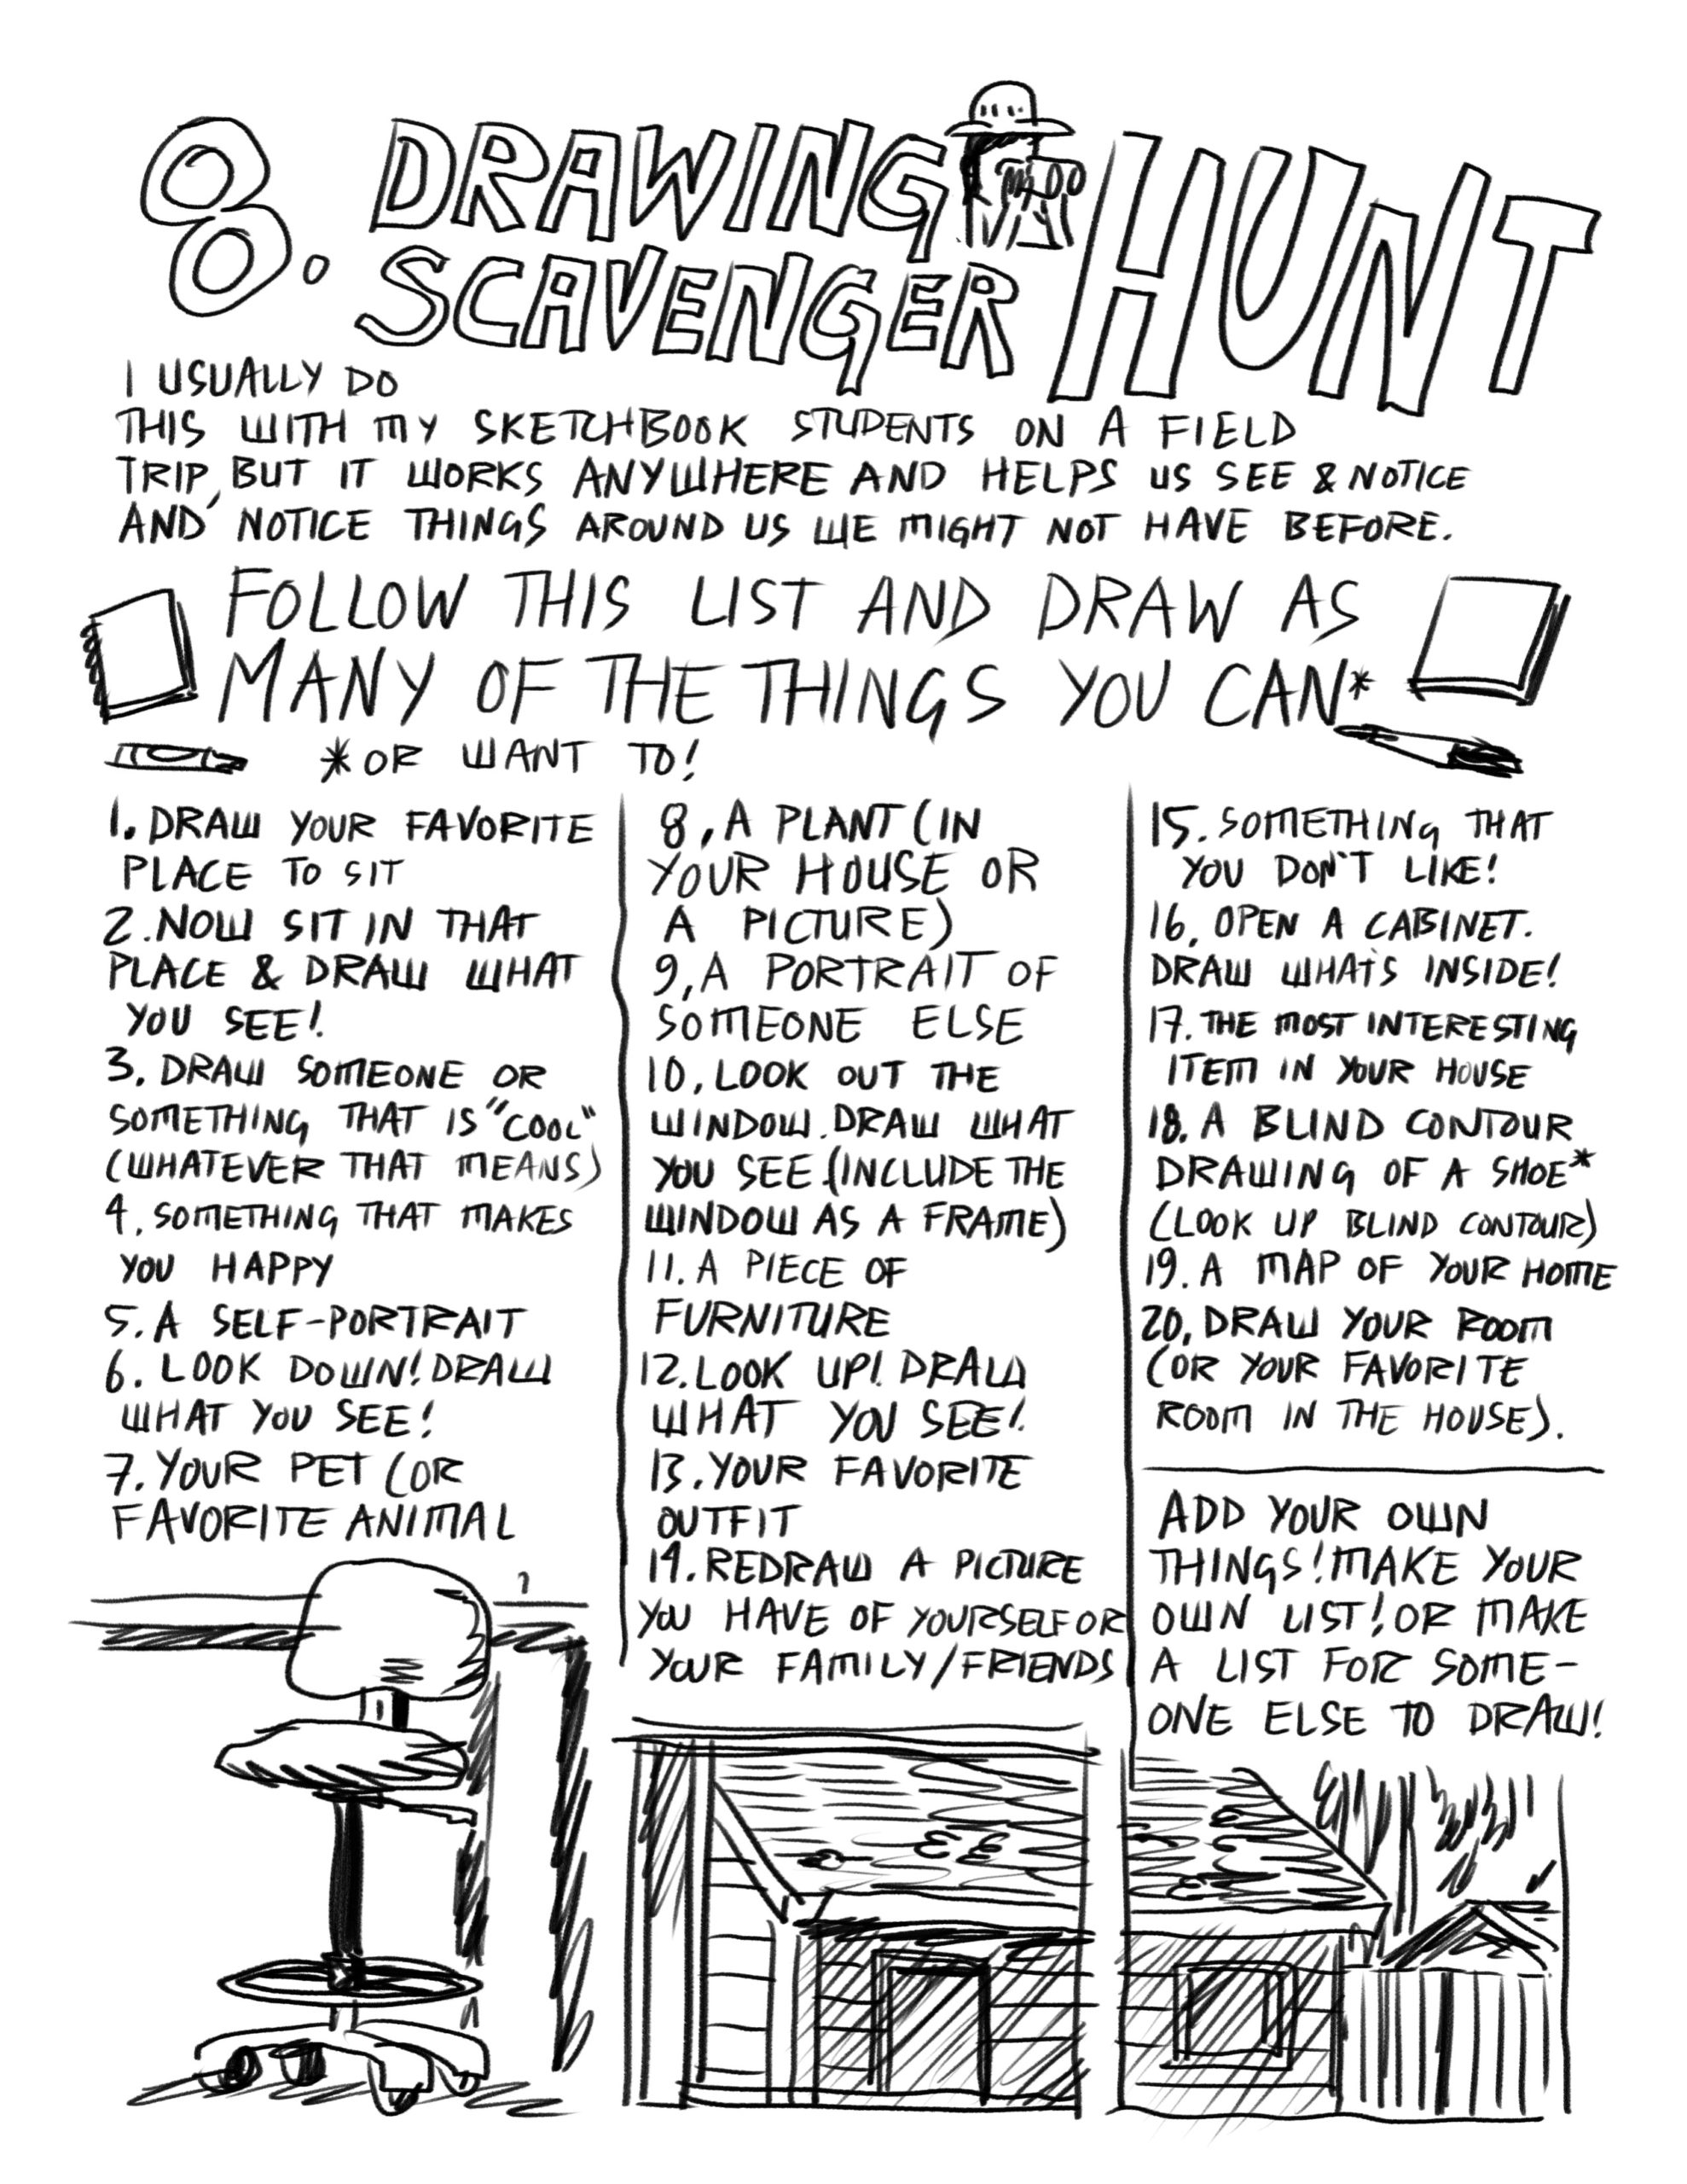 8. DRAWING
SCAVENGER
HUNT
I USUALLY DO
THIS WITH MY SKETCHBOOK STUDENTS ON A FIELD
TRIP, BUT IT WORKS ANYWHERE AND HELPS US SEE & NOTICE
AND NOTICE THINGS AROUND US WE MIGHT NOT HAVE BEFORE.
FOLLOW THIS LIST AND DRAW AS
MANY OF THE THINGS YOU CAN*
*OR WANT TO!
1. DRAW YOUR FAVORITE
PLACE TO SIT
2. NOW SIT IN THAT
PLACE & DRAW WHAT
YOU SEE!
3. DRAW SOMEONE OR
SOMETHING THAT IS "COOL"
(WHATEVER THAT MEANS)
4. SOMETHING THAT MAKES
YOU HAPPY
5. A SELF-PORTRAIT
6. LOOK DOWN! DRAW
WHAT YOU SEE!
7. YOUR PET (OR
FAVORITE ANIMAL
8, A PLANT (IN
YOUR HOUSE OR
A PICTURE)
9, A PORTRAIT OF
SOMEONE ELSE
10, LOOK OUT THE
WINDOW. DRAW WHAT
YOU SEE. (INCLUDE THE
WINDOW AS A FRAME)
11. A PIECE OF
FURNITURE
12. LOOK UP! DRAW
WHAT YOU SEE!
13. YOUR FAVORITE
OUTFIT
14. REDRAW A PICTURE
YOU HAVE OF YOURSELF OR
YOUR FAMILY/FRIENDS
15. SOMETHING THAT
YOU DON'T LIKE!
16, OPEN A CABINET.
DRAW WHAT'S INSIDE!
17. THE MOST INTERESTING
ITEM IN YOUR HOUSE
18. A BLIND CONTOUR
DRAWING OF A SHOE*
(LOOK UP BLIND CONTOUR)
19. A MAP OF YOUR HOME
20, DRAW YOUR ROOM
(OR YOUR FAVORITE
ROOM IN THE HOUSE).
ADD YOUR OWN
THINGS! MAKE YOUR
OWN LIST! OR MAKE
A LIST FOR SOME-
ONE ELSE TO DRAW!